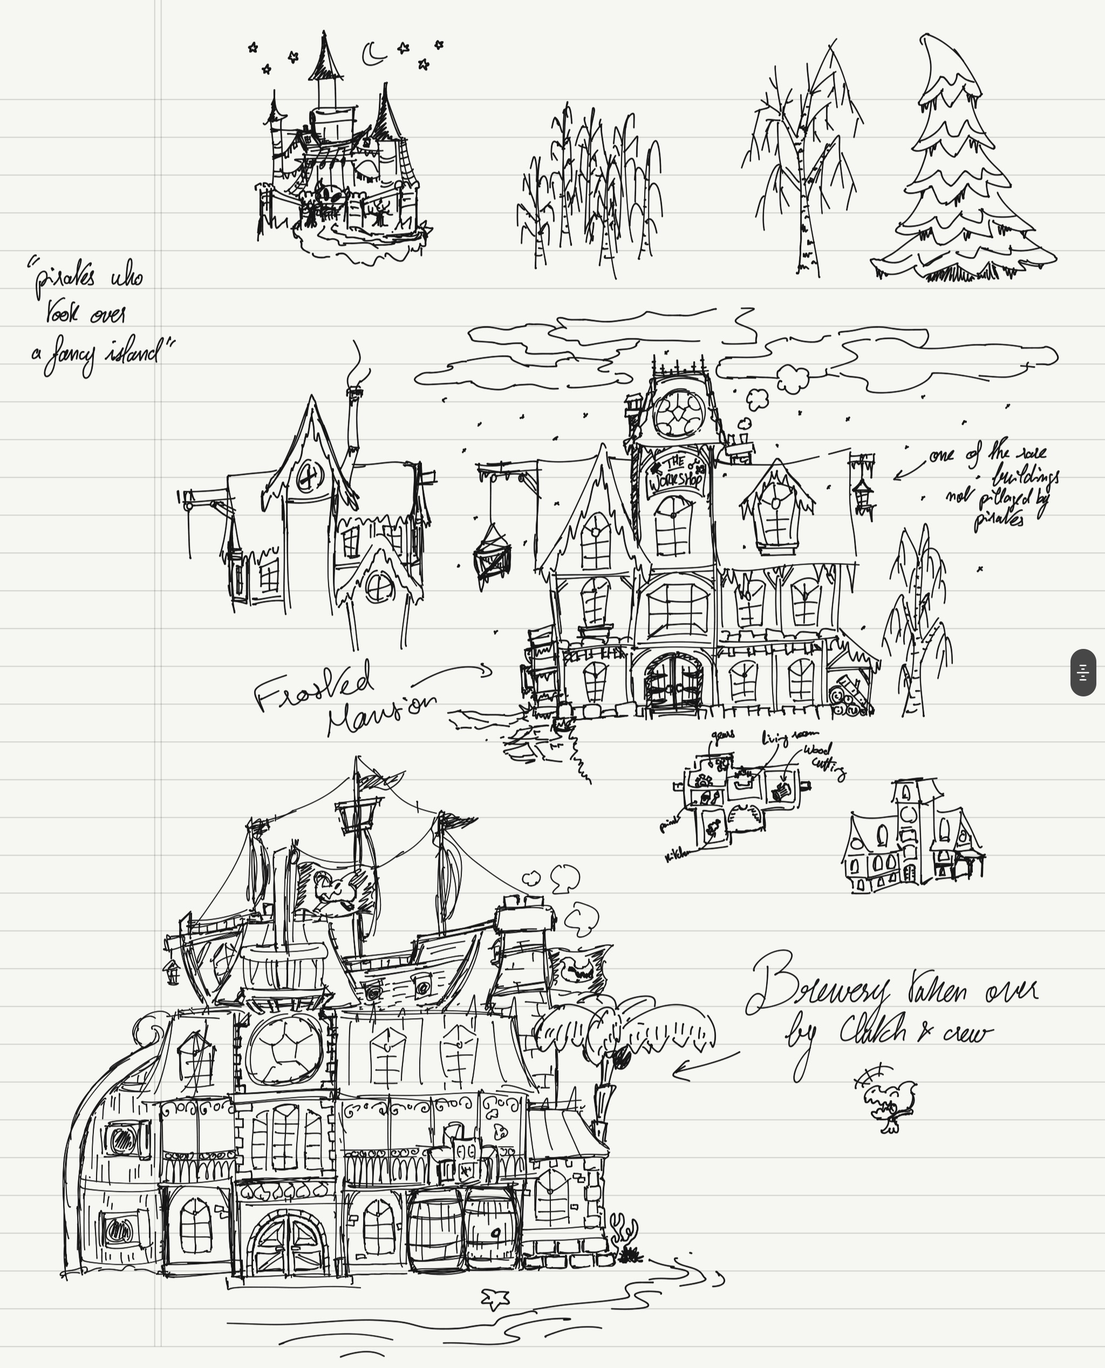 "pirates who
took over
a fancy island"
THE
WORKSHOP
one of the rare
buildings
not pillaged by
pirates
Frosted
Mansion
gears
living room
wood
cutting
kitchen
Brewery taken over
by Clutch & crew